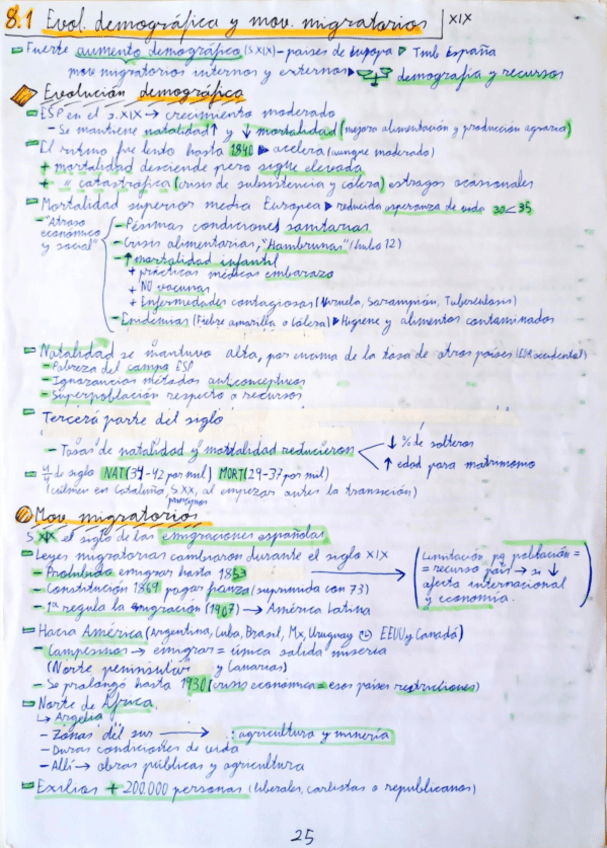 8.1 Evol. demográfica y mov. migratorios XIX
Fuerte aumento demográfico (S.XIX) – países de Europa ▷ Tmb España
mov migratorios internos y externos ▶ demografía y recursos
Evolución demográfica
ESP en el s.XIX → crecimiento moderado
– Se mantiene natalidad ↑ y ↓ mortalidad (mejora alimentación y producción agraria)
El ritmo fue lento hasta 1840 ▶ acelera (aunque moderado)
+ mortalidad desciende pero sigue elevada
+ " catastrófica (crisis de subsistencia y cólera) estragos ocasionales
Mortalidad superior media Europea ▶ reducida esperanza de vida 30<35
– "Atraso económico y social"
– Pésimas condiciones sanitarias
– Crisis alimentarias, "Hambrunas" (hubo 12)
– ↑ mortalidad infantil
+ prácticas médicas embarazo
+ NO vacunas
+ Enfermedades contagiosas (Viruela, Sarampión, Tuberculosis)
– Epidemias (Fiebre amarilla o Cólera) ▶ Higiene y alimentos contaminados
Natalidad se mantuvo alta, por encima de la tasa de otros países (EUR occidental)
– Pobreza del campo ESP
– Ignorancias métodos anticonceptivos
– Superpoblación respecto a recursos
Tercera parte del siglo
– Tasas de natalidad y mortalidad reducieron
↓ % de solteros
↑ edad para matrimonio
de siglo NAT (34-42 por mil) MORT (29-37 por mil)
(culmen en Cataluña, S.XX, al empezar antes la transición)
principios
Mov. migratorios
S XIX el siglo de las emigraciones españolas
Leyes migratorias cambiaron durante el siglo XIX
– Prohibido emigrar hasta 1853
– Constitución 1869 pagar fianza (suprimida con 73)
– 1ª regula la emigración (1907) → América Latina
(Limitación pq población =
= recurso país → si ↓
afecta internacional
y economía.
Hacia América (Argentina, Cuba, Brasil, Mx, Uruguay EEUU y Canadá)
– Campesinos → emigrar = única salida miseria
(Norte peninsular y Canarias)
– Se prolongó hasta 1930 (crisis económica = esos países restricciones)
Norte de África.
↳ Argelia
– Zonas del sur → : agricultura y minería
– Duras condiciones de vida
– Allí → obras públicas y agricultura
Exilios + 200.000 personas (liberales, carlistas o republicanos)
25